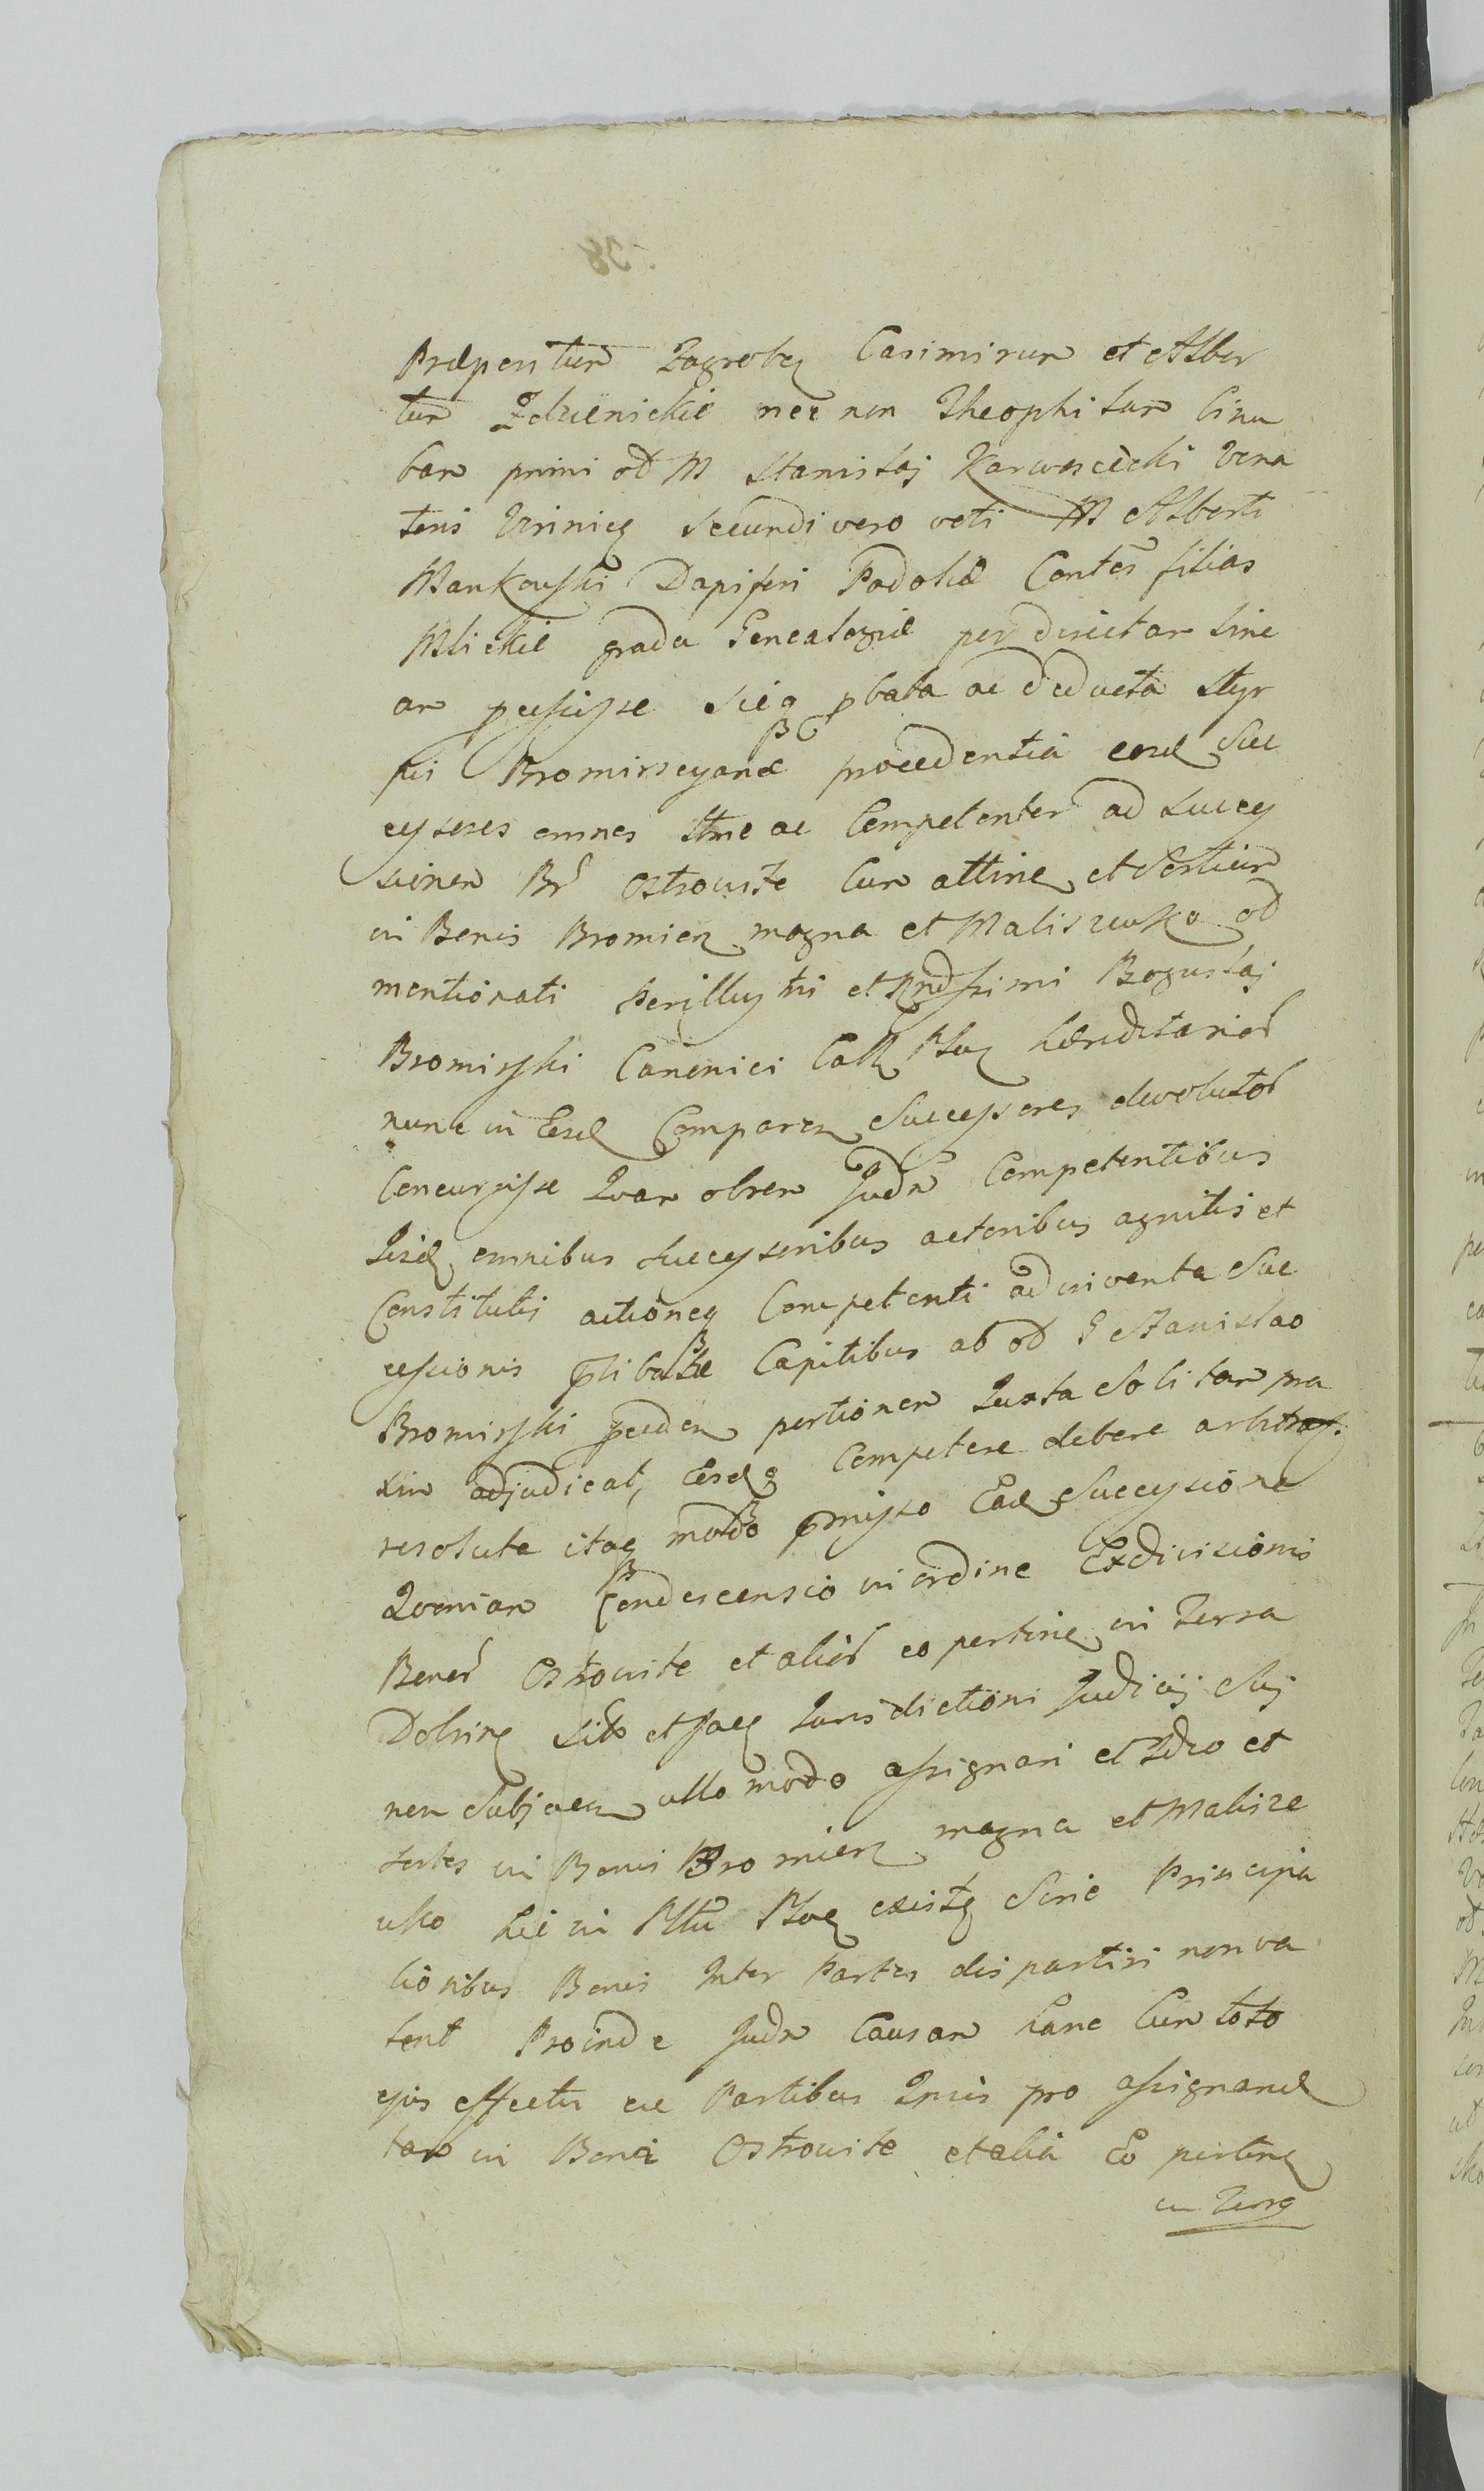 Præpositum Zagroby Casimirum et Alber
tum Zdzienickie nec non Theophilam Cina
bar primi od M Stanislaj Karwosiecki Vena
toris Vrinicy Secundi vero voti M Alberti
Mankowski Dapiferi Podoliæ Contes filias
Mlickie gradu Genealogiæ per directam Line
am processisse Sicq pbata ac deducta Styr
pis Bromirscyanæ procedentia eosd Suc
cessores omnes Itme ac Competenter ad Succes
sionem Br Ostrowite Cum attine et Sortium
in Bonis Bromierz magna et Maliszewko od
mentionati Perillustri et Rndssimi Boguslaj
Bromirski Canonici Cath Ploc hæreditarior
nunc in Eosd Comparen Successores devolutor
Concurrisse Quam obrem Judm Competentibus
Iisd omnibus Successoribus actoribus agnitis et
Constitutis actioneq Competenti adinventa Suc
cessionis plibatæ Capitibus ab od G Stanislao
Bromirski portionem Juxta Solitam pra
xim adjudicat, Eosdq Competere debere arbitra
resoluta itaq modo pmisso Ead Successione
Quoniam Condescensio in ordine Exdivisionis
Bonor Ostrowite et alior eo pertine in Terra
Dobrine Sit et Jurisdictioni Judicij Sui
non Subjacen ullo modo assignari et Ideo et
Sortes in Bonis Bromierz magna et Malisze
wko hic in Pltu Ploc existe Sine Principa
lioribus Bonis Inter Partes dispartiri non va
lent Proinde Judm Causam hanc Cum toto
ejus effectu ac Partibus Ipsis pro assignand
tam in Bona Ostrowite et alia Eo pertine
in Terra